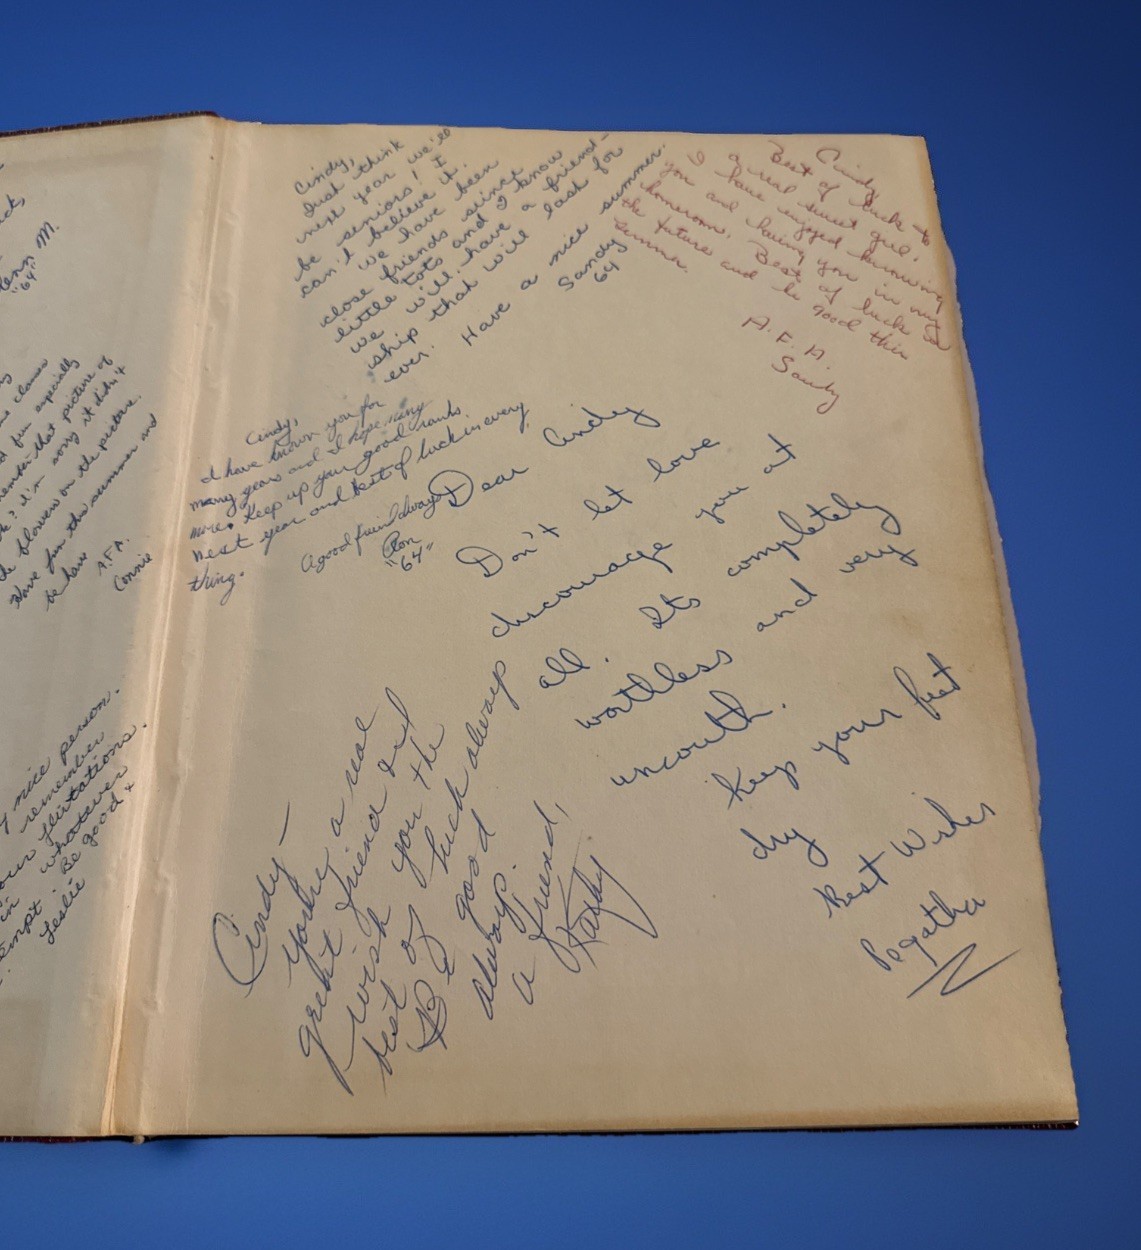 M.
"64"
classes
fun especially
that picture of
sorry it didn't
flowers on the picture.
Have fun this summer and
be have
A.F.A.
Connie
nice person.
remember
flirtations.
in whatever
Be good &
Leslie
Cindy,
Just think
next year we'll
be seniors! I
can't believe it.
We have been
close friends since
little tots and I know
we will have a friend-
ship that will last for
ever. Have a nice summer.
Sandy
64
Cindy
Best of luck to
a real sweet girl.
I have enjoyed knowing
you and having you in my
homeroom. Best of luck in
the future and be good this
summer.
A.F.A
Sandy
Cindy,
I have known you for
many years and I hope many
more. Keep up your good ranks
next year and best of luck in every
thing.
A good friend always
Ron
"64"
Dear Cindy
Don't let love
discourage you at
all. Its completely
worthless and very
uncouth.
Keep your feet
dry
Best Wishes
Pegatha
Cindy—
You're a real
great friend and
I wish you the
best of luck always
Be good
always
a friend,
Kathy